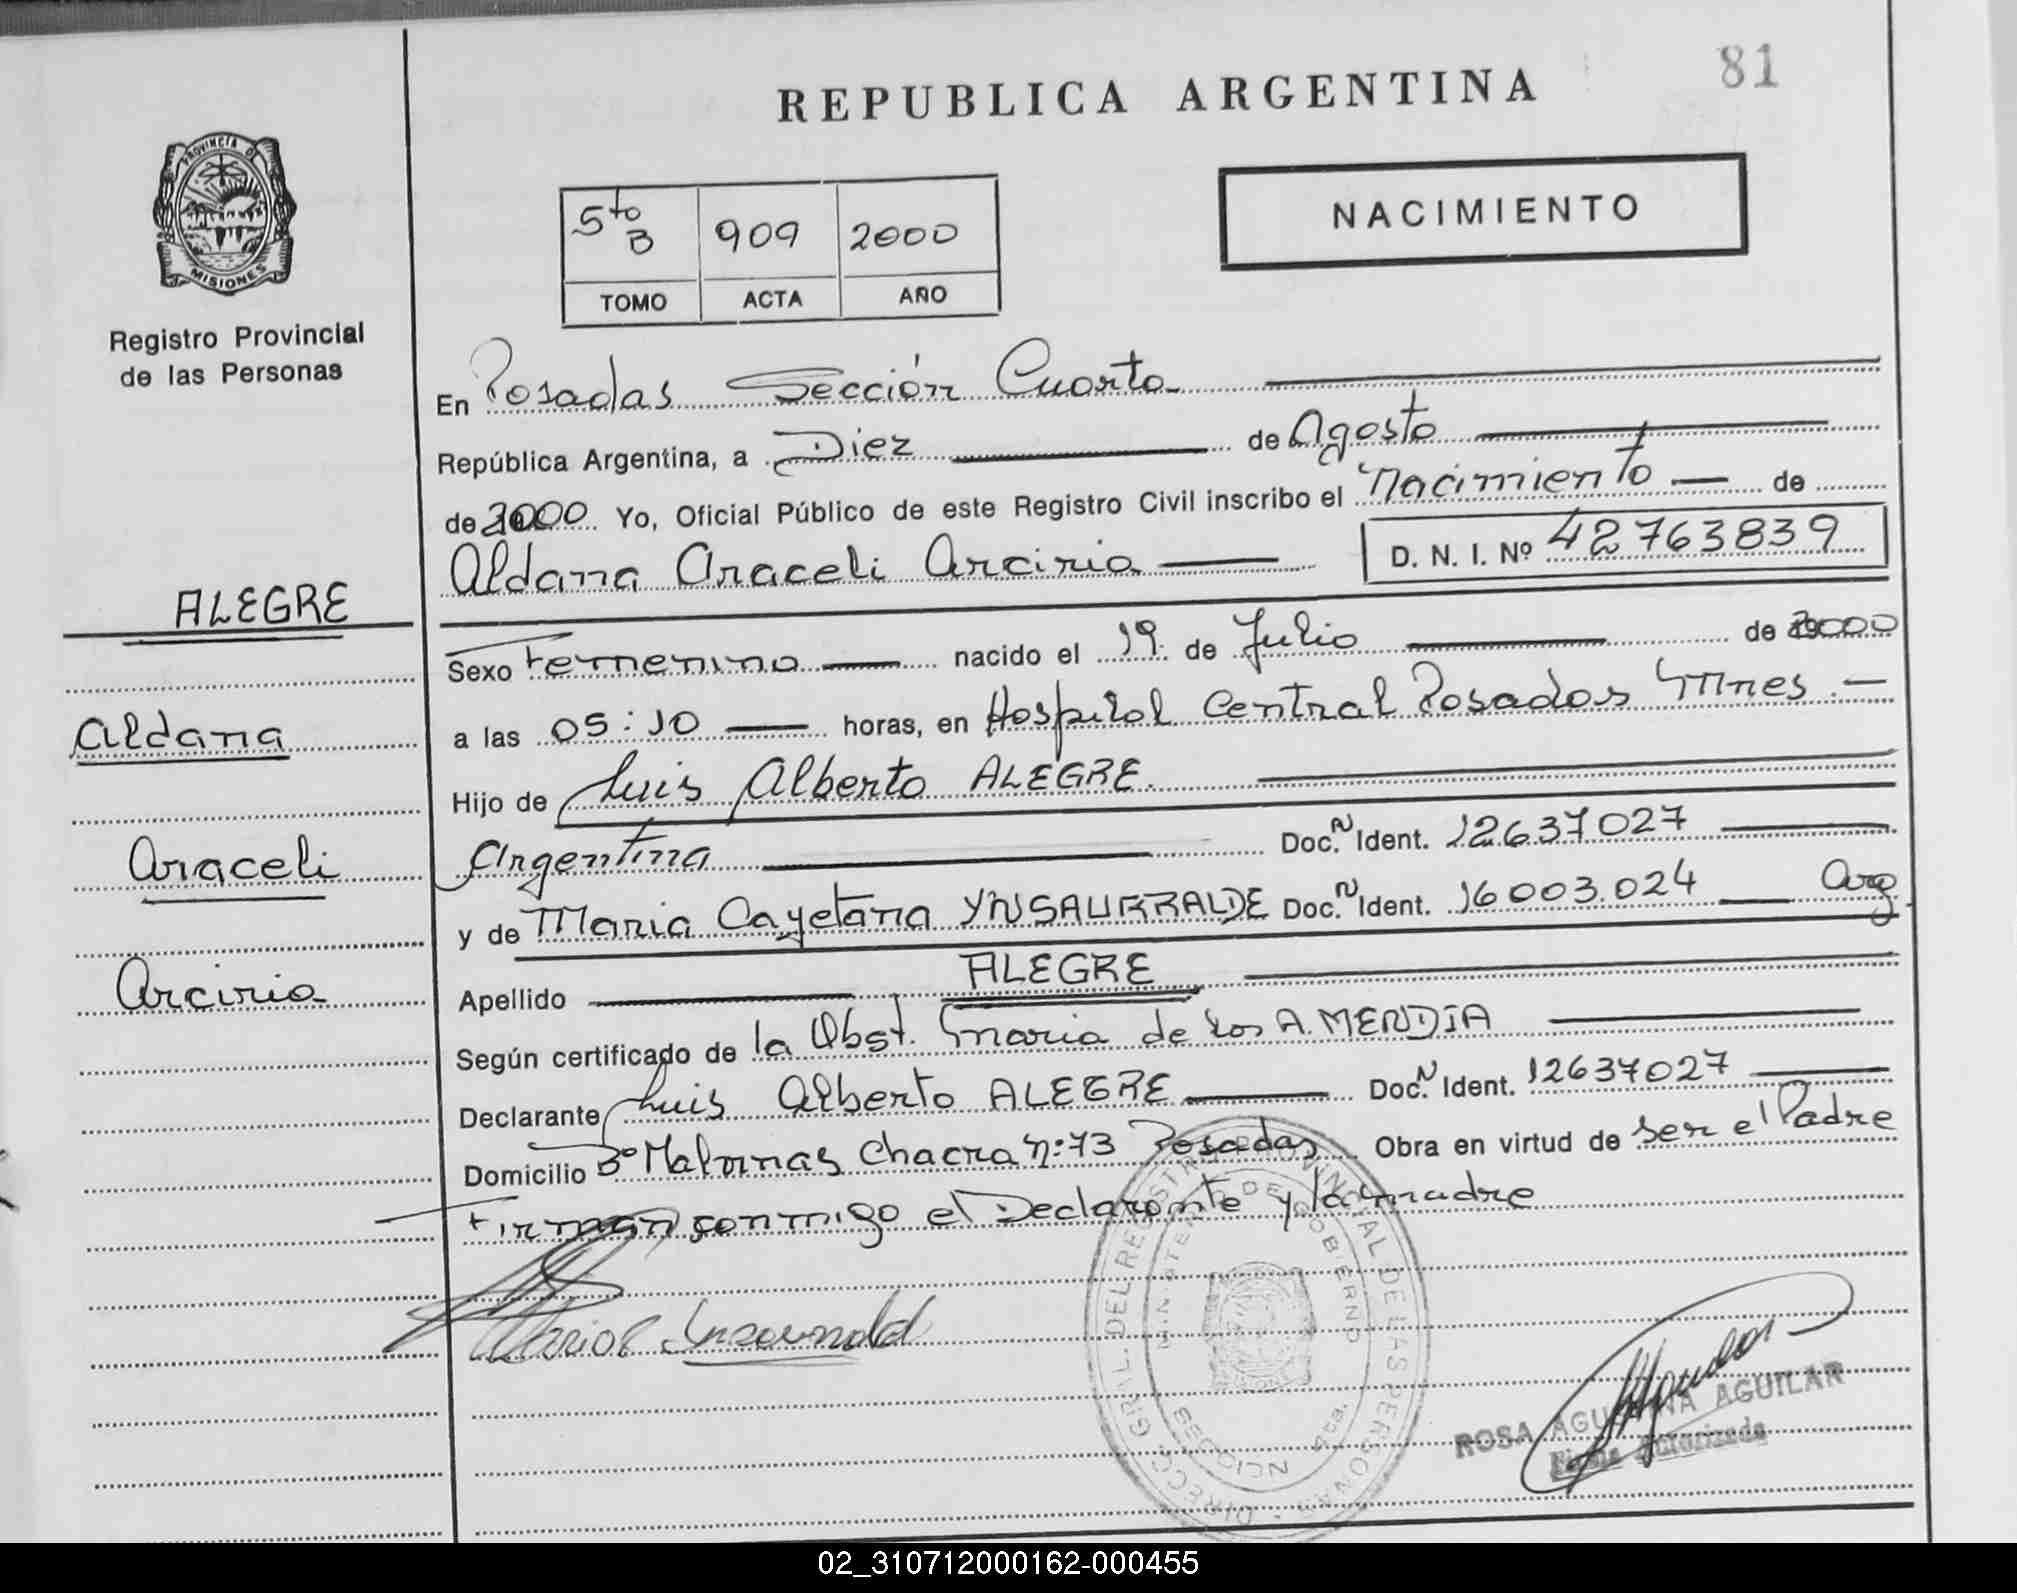 81
REPUBLICA ARGENTINA
PROVINCIA DE
MISIONES
Registro Provincial
de las Personas
5to B 909 2000
TOMO ACTA AÑO
NACIMIENTO
En Posadas Sección Cuarta
República Argentina, a Diez de Agosto
de 2000 Yo, Oficial Público de este Registro Civil inscribo el Nacimiento de
Aldana Araceli Arciria D. N. I. Nº 42763839
ALEGRE
Aldana
Araceli
Arciria
Sexo Femenino nacido el 19 de Julio de 2000
a las 05:10 horas, en Hospital Central Posadas Mnes
Hijo de Luis Alberto ALEGRE.
Argentina Doc. N Ident. 12637027
y de Maria Cayetana YNSAURRALDE Doc. N Ident. 16003.024 Arg.
Apellido ALEGRE
Según certificado de la Obst. Maria de los A. MENDIA
Declarante Luis Alberto ALEGRE Doc. N Ident. 12637027
Domicilio Bº Malvinas Chacra Nº 73 Posadas Obra en virtud de ser el Padre
Firman conmigo el Declarante y la madre
DIRECC. GRAL. DEL REGISTRO PROVINCIAL DE LAS PERSONAS
MINISTERIO DE GOBIERNO
SECCION 4ta.
ROSA AGUSTINA AGUILAR
Firma Autorizada
02_310712000162-000455